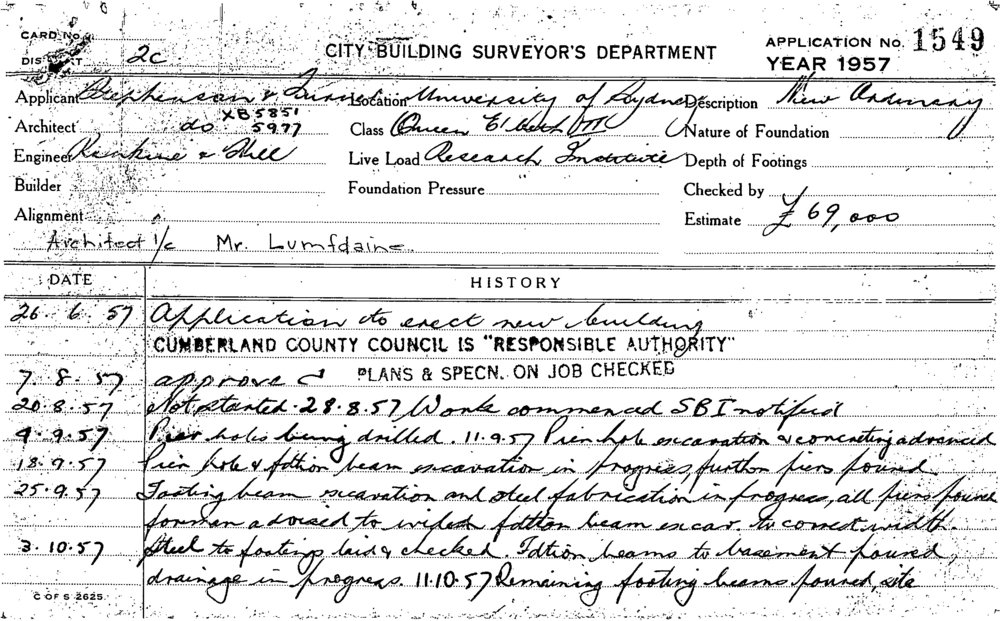 CARD No.
DISTRICT 2c
CITY BUILDING SURVEYOR'S DEPARTMENT
APPLICATION No. 1549
YEAR 1957
Applicant Stephenson & Turner Location University of Sydney Description New Ordinary
Architect do XB5851 5977 Class Queen Elbeth III Nature of Foundation
Engineer Rankine & Hill Live Load Research Institute Depth of Footings
Builder Foundation Pressure Checked by
Alignment Estimate £69,000
Architect i/c Mr. Lumfdaine
DATE HISTORY
26 6 57 Application to erect new building
CUMBERLAND COUNTY COUNCIL IS "RESPONSIBLE AUTHORITY"
7. 8. 57 approved PLANS & SPECN. ON JOB CHECKED
20.8.57 Not started. 28.8.57 Work commenced SBI notified
9.9.57 Pier holes being drilled. 11.9.57 Pier hole excavation & concreting advanced
18.9.57 Pier hole & fdtion beam excavation in progress, further piers poured
25.9.57 Footing beam excavation and steel fabrication in progress, all piers poured
foreman advised to widen fdtion beam excav. to correct width.
3.10.57 Steel to footings laid & checked. Fdtion beams to basement poured,
drainage in progress. 11.10.57 Remaining footing beams poured, site
C OF S 2625